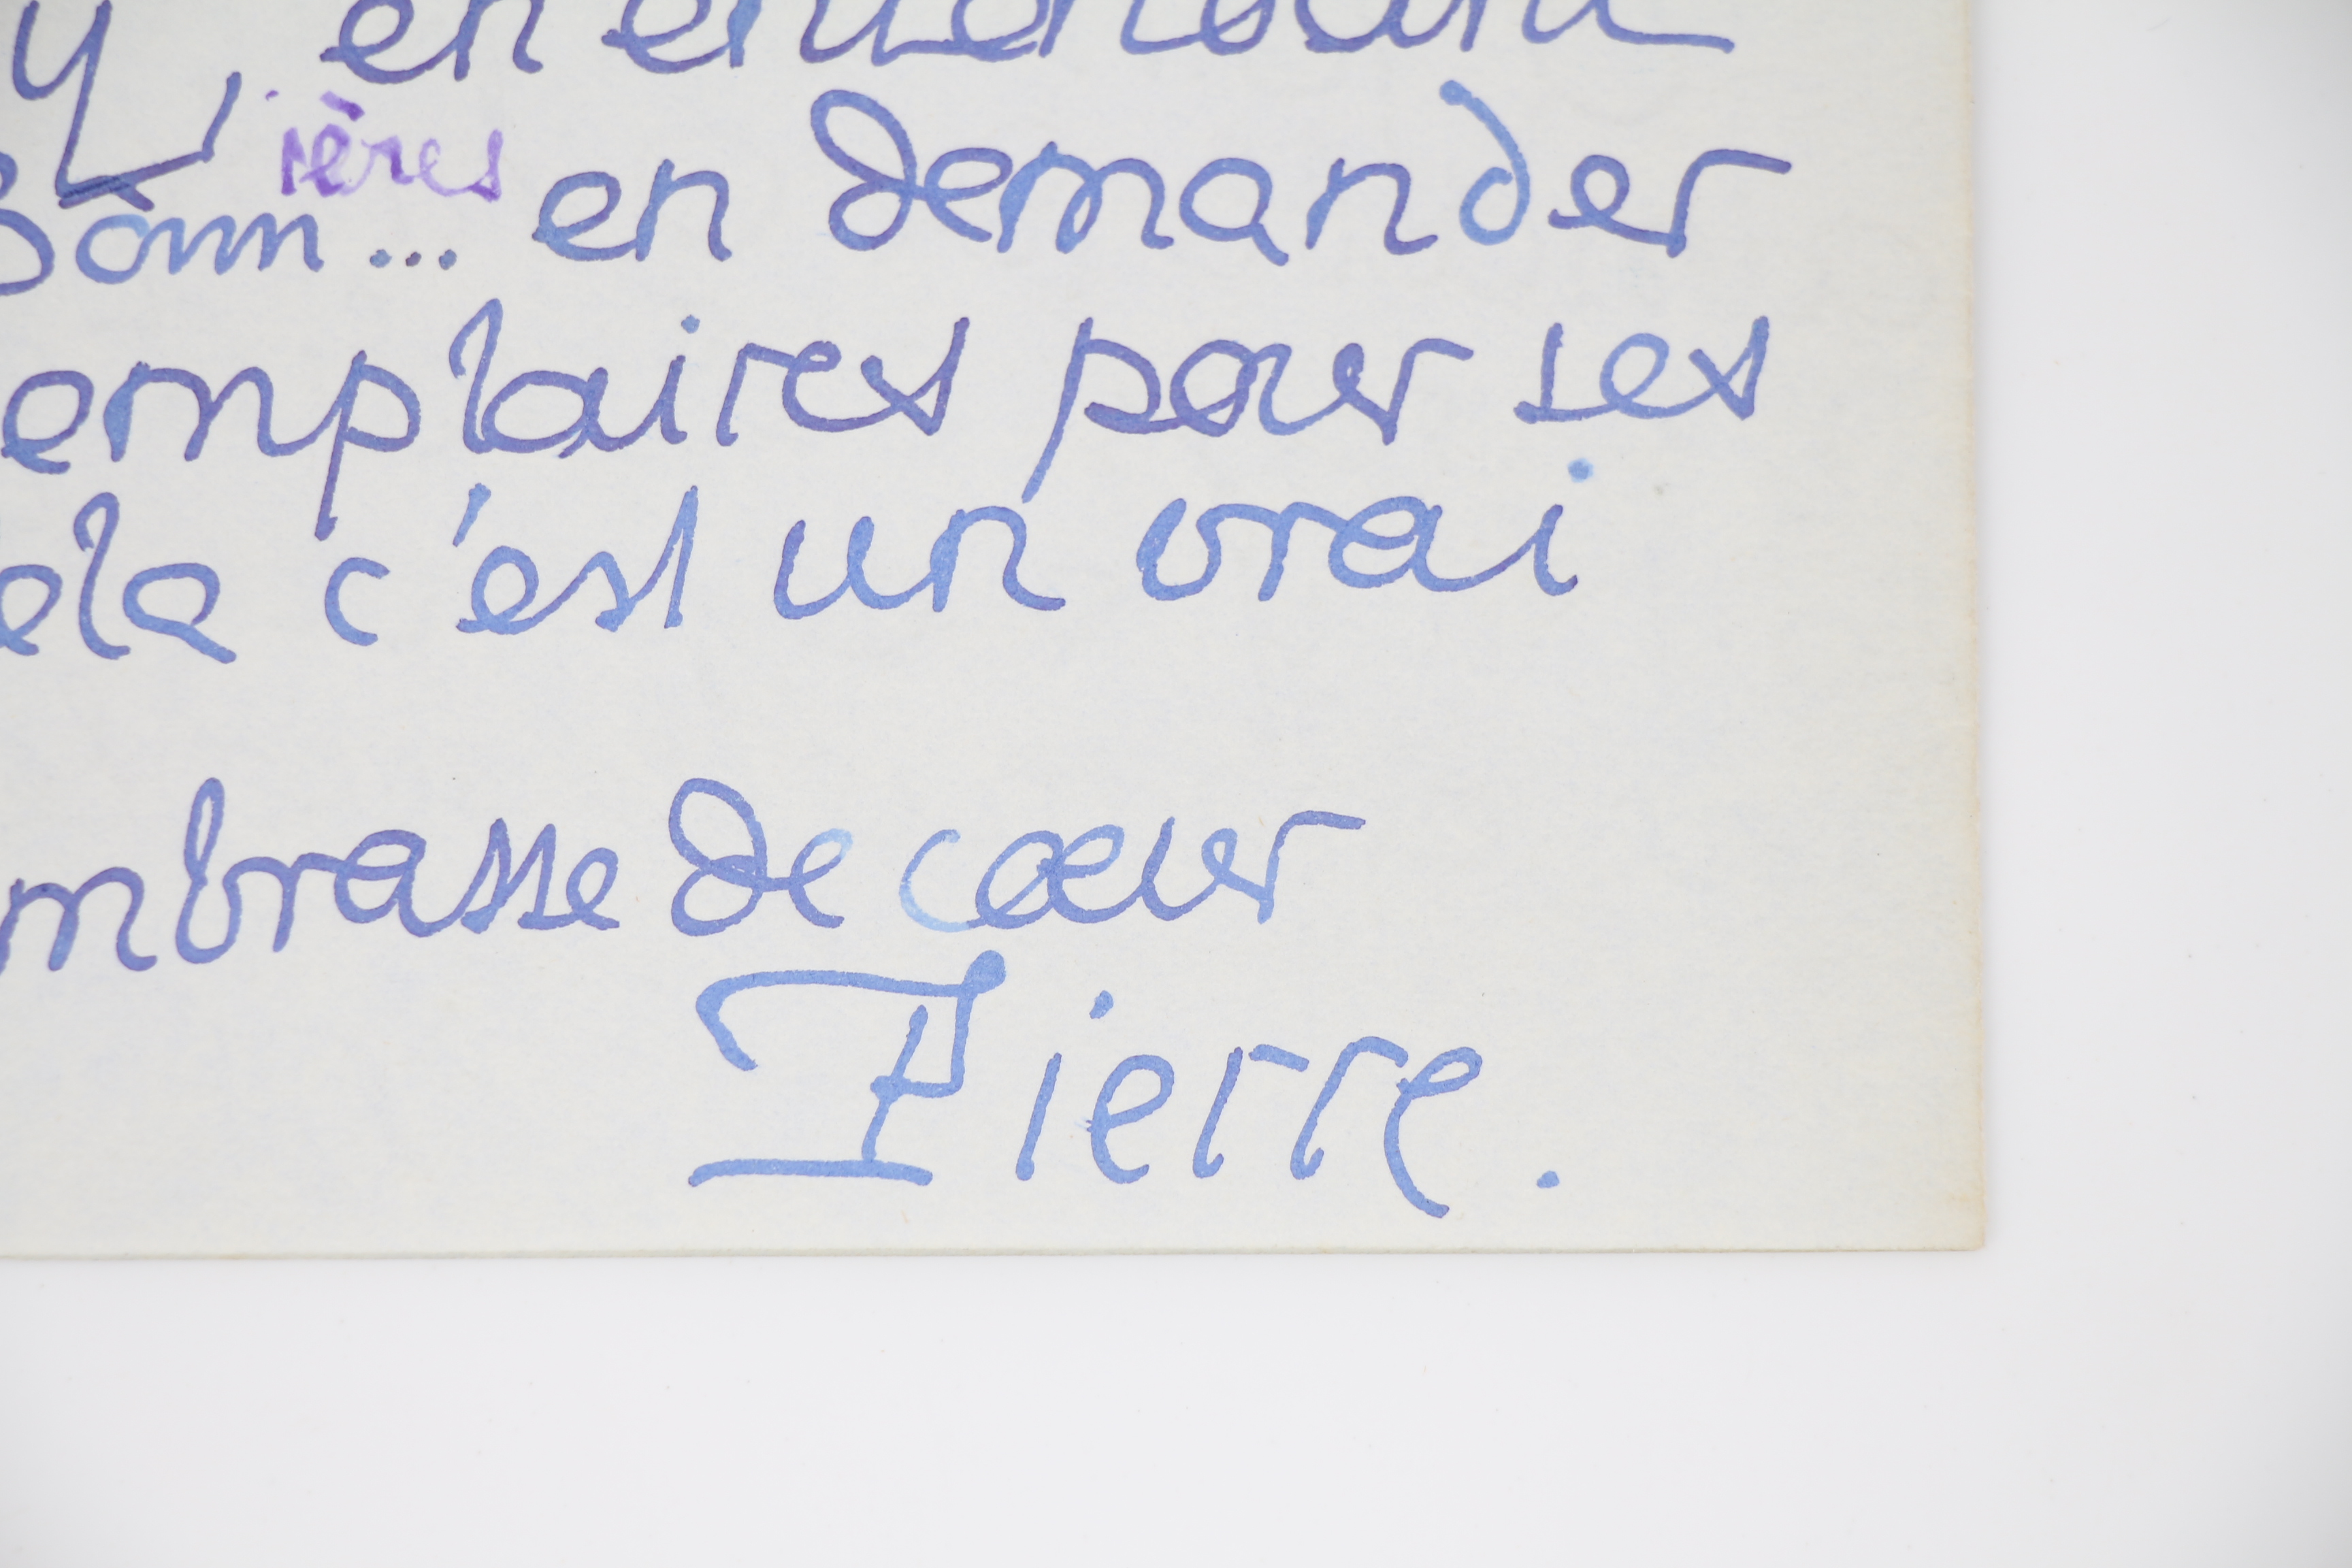 y, en entendant
ières
Bonn... en demander
emplaires pour ses
ela c'est un vrai
mbrasse de cœur
Pierre.